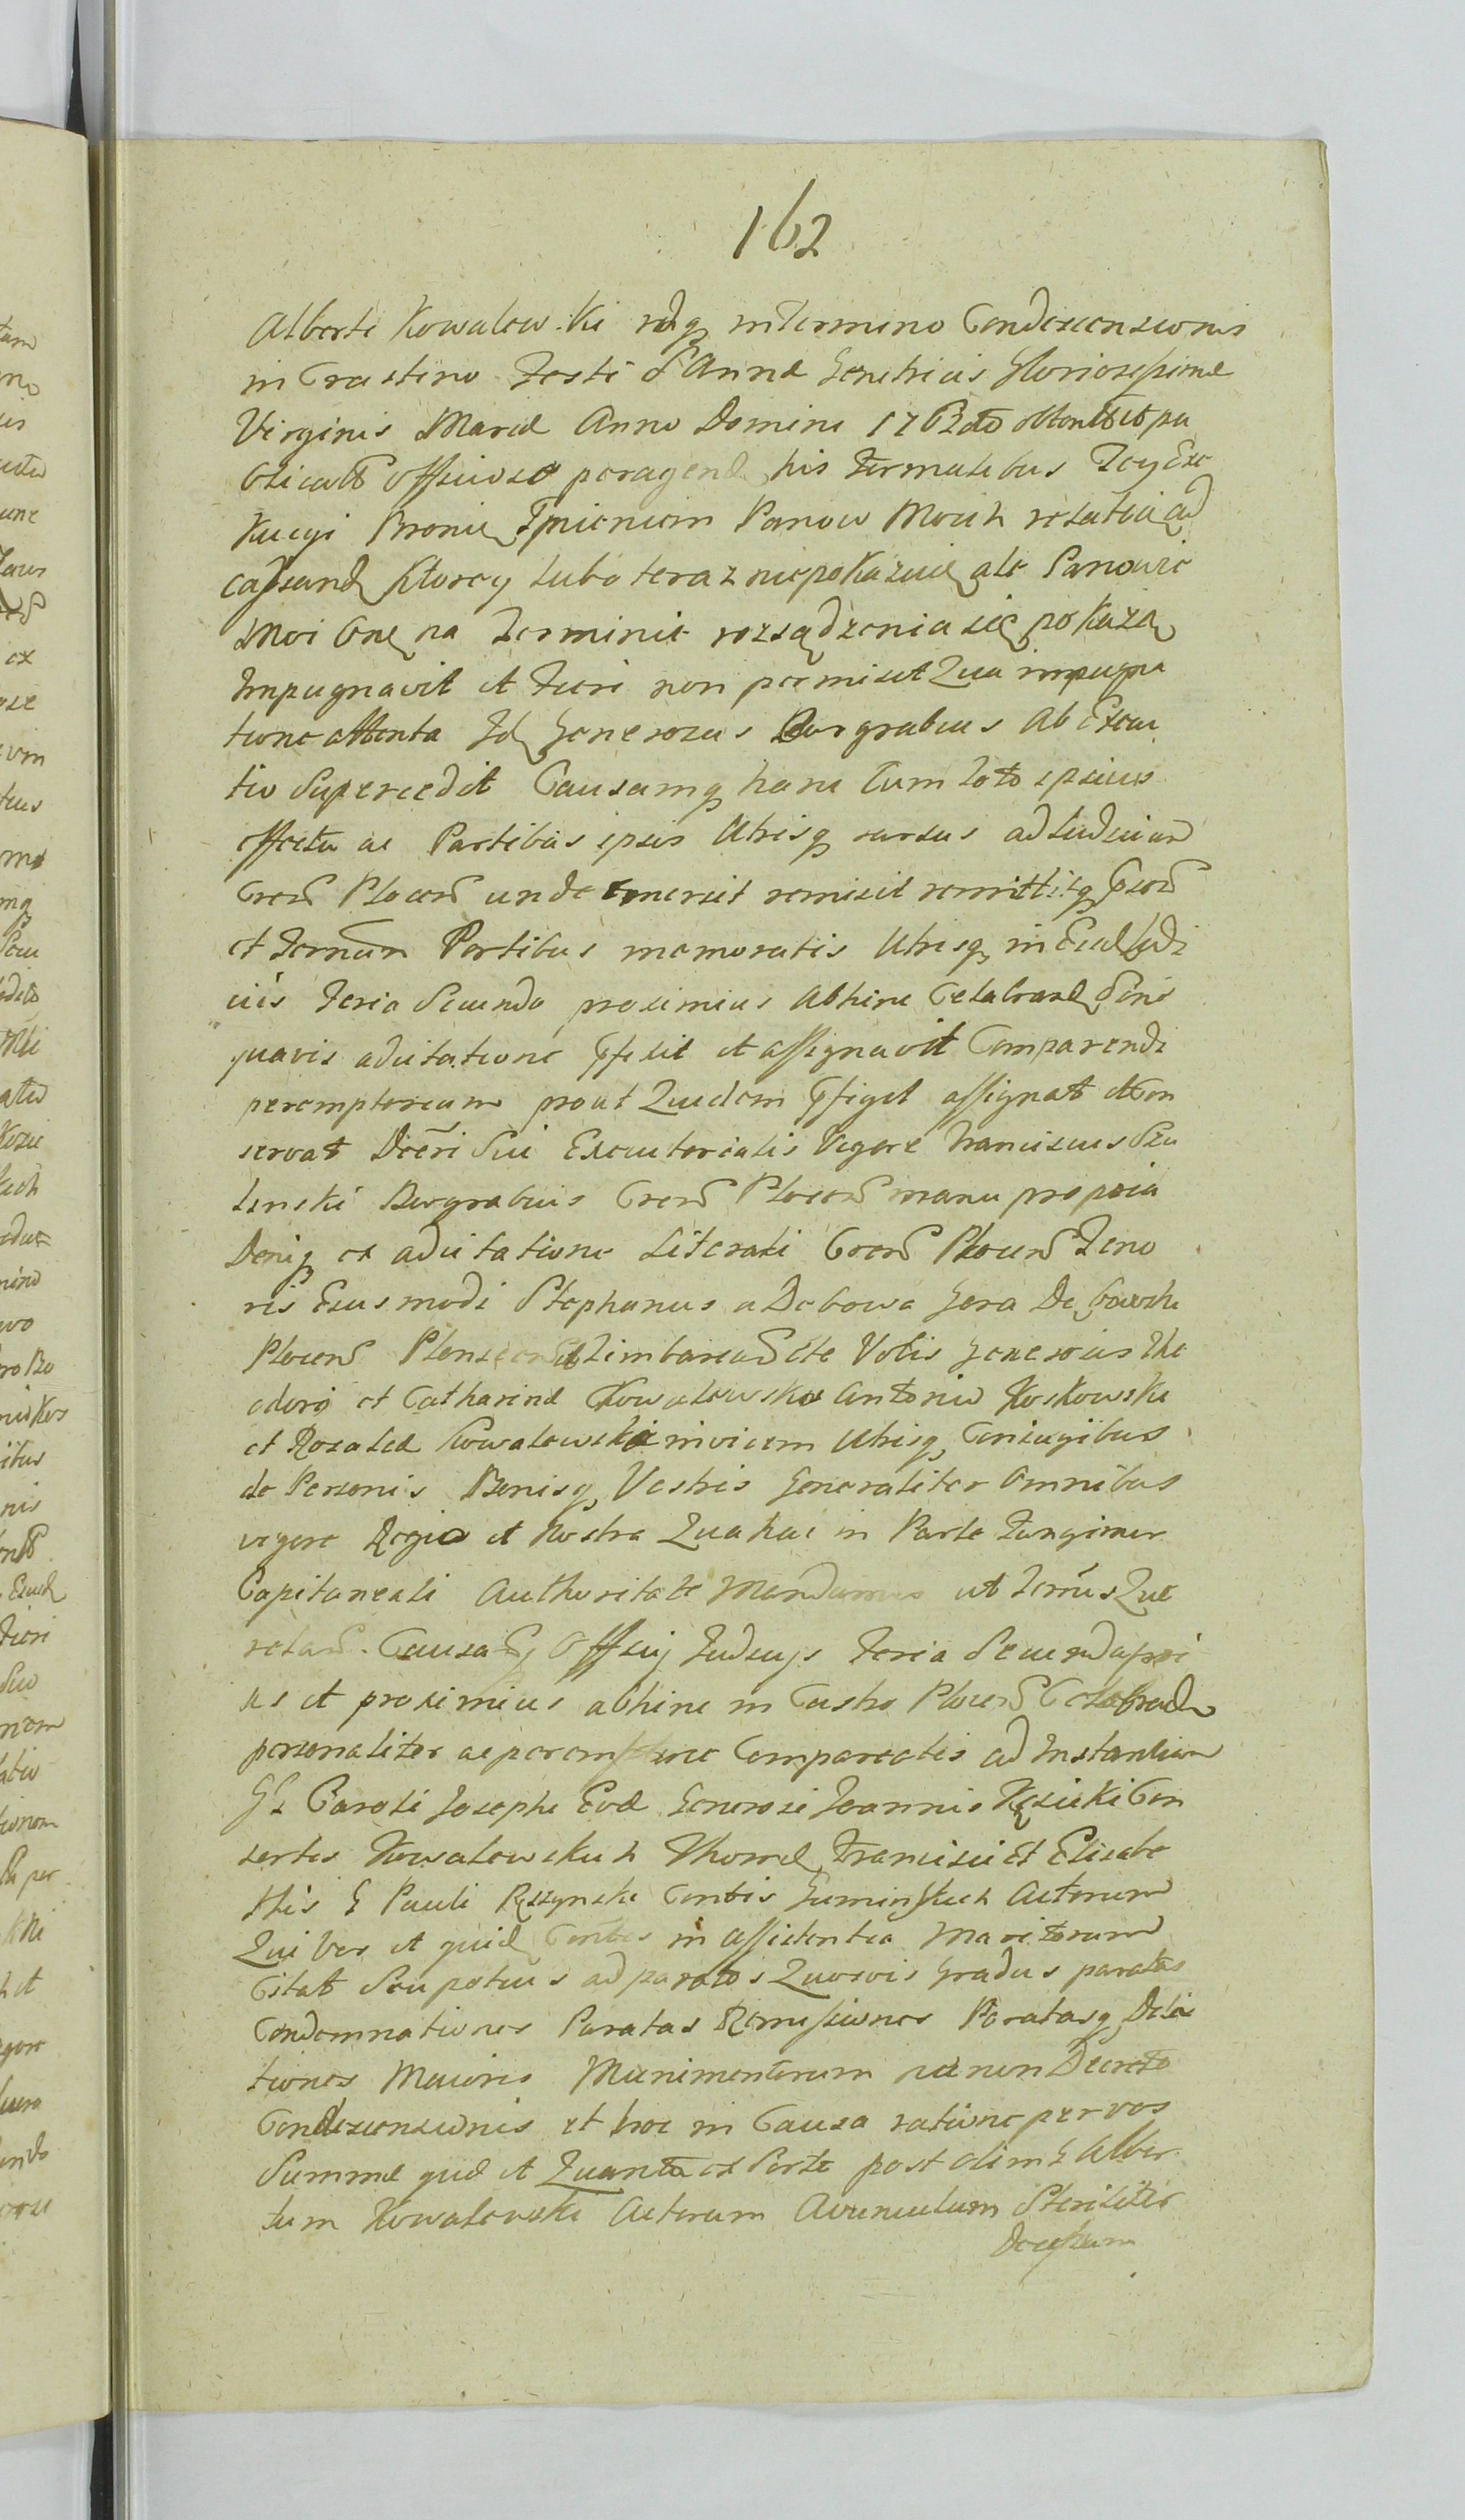 162
Alberti Kowalewski idq in Termino Condescensionis
in Crastino Festi S Annæ Genitricis Gloriosissimæ
Virginis Mariæ Anno Domini 1763tio obtent et pu
blicat Officiose peragend his formalibus Tey Exe
kucyi Bronię Imieniem Panow Moich relatia ad
cassand ktorey lubo teraz niepokazuię ale Panowie
Moi Onę na Terminie rozsądzenia się pokazą
Impugnavit et Fieri non permisit Qua impugna
tione attenta Id Generosus Burgrabius Ab Execu
tio Supercedit Causamq hanc Cum toto ipsius
effectu ac Partibus ipsis Utrisq rursus ad Iudicium
Cren Plocen unde emersit remisit remittitq
et Terminum Partibus memoratis Utrisq in Iudi
ciis Feria Secunda proximius Abhinc Celebrand Sine
quavis adcitatione pfixit et assignavit Comparendi
peremptorium prout Quidem pfigit assignat et Con
servat Decreti Sui Executorialis Vigore Franciscus Szu
linski Burgrabius Cren Plocen manu propria
Deniq ex adcitatione Literali Cren Plocen Teno
ris Eiusmodi Stephanus a Debowa Gora De
Plocen et Zimbarcen etc Vobis Generosis The
odoro et Catharinæ Kowalewskie Antonio Koskowski
et Rosaliæ Kowalewskie invicem Utrisq Coniugibus
de Personis Bonisq Vestris Generaliter Omnibus
vigore Regia et Nostra Qua hac in Parte Fungimur
Capitaneali Authoritate Mandamus ut Terminis Que
relarum Causarumq Officij Iudicijs Feria Secunda pri
us et proximius abhinc in Castro Plocen Celebrand
personaliter ac peremptorie Compareatis ad Instantiam
GG Caroli Josephi Evæ Generosi Joannis Kęsicki Con
sortis Kowalewskich Francisci Et Elisabe
this G Pauli Rszynski Contis Guminskich Actorum
Qui Vos et quid Contes in Assistentia Maritorum
Citat Seu potius ad paratos Quosvis Gradus paratas
Condemnationes Paratas Remissiones Paratasq Dila
tiones Maioris Munimentorum nec non Decreto
Condescensionis et hoc in Causa ratione per vos
Summæ quæ et Quanta ex Sorte post olim G Alber
tum Kowalewski Actorum Avunculum Steriliter
Decessum